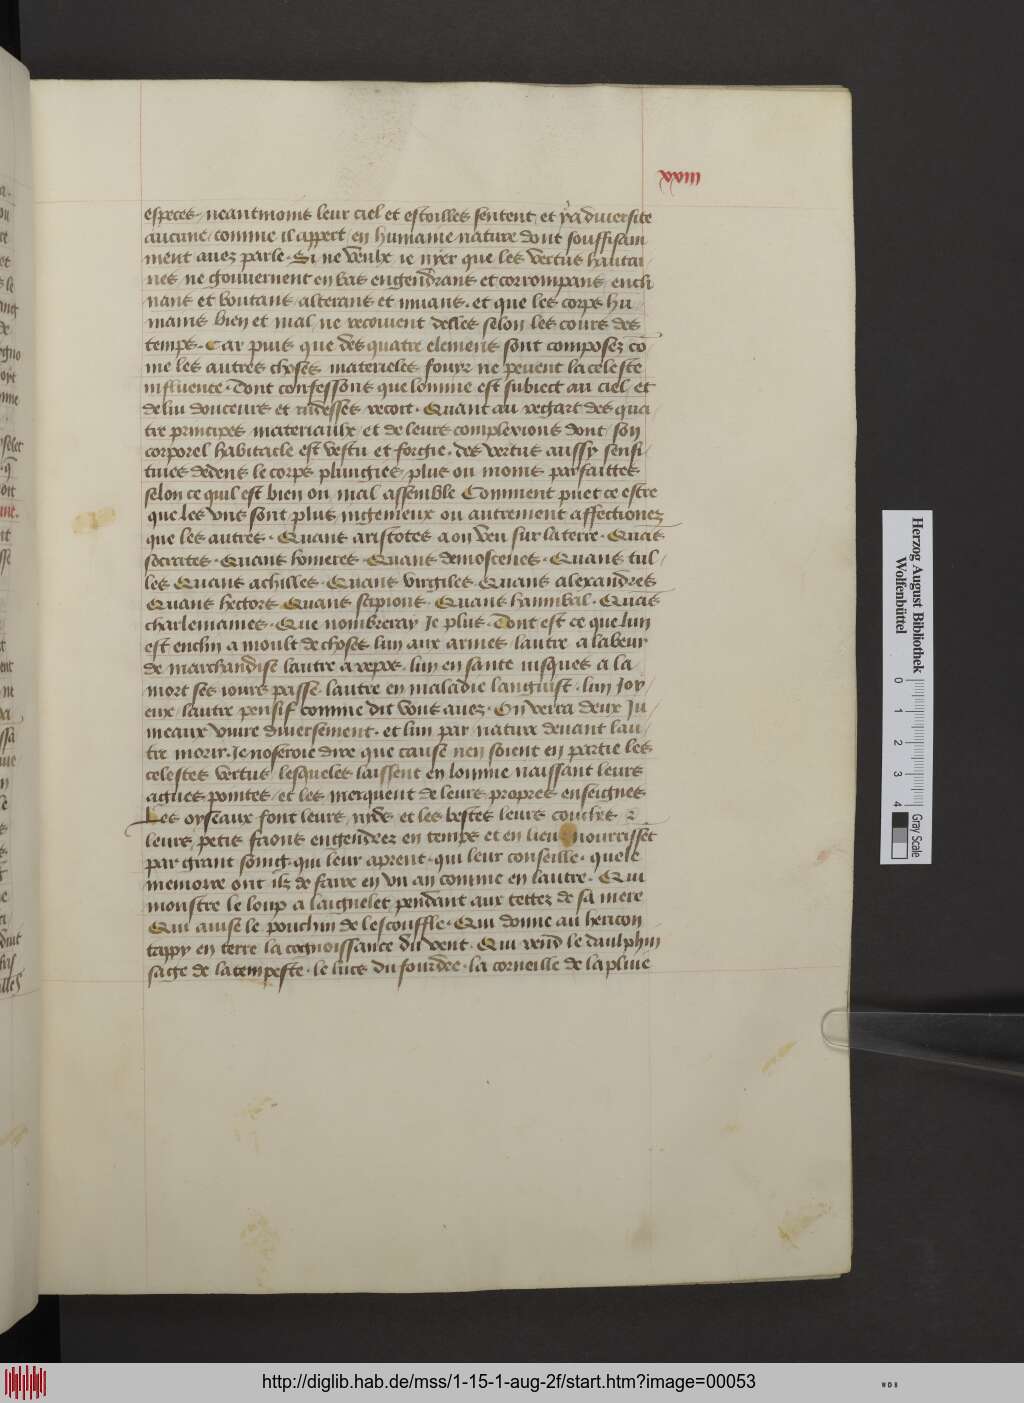 xxviii
especes / neantmoins leur ciel et estoilles sentent et y a diuersite
aucune / comme il appert / en humaine nature dont souffisam
ment auez parle · Si ne veulx ie nyer que les vertus haultai
nes ne gouuernent en bas engendrans et corrompans / encli
nans et boutans / alterans et muans · et que les corps hu
mains bien et mal / ne recoiuent delles selon les cours des
temps · Car puis que des quatre elemens sont composez co
me les autres choses materieles fouyr ne peuent la celeste
influence · Dont confessons que lomme est subiect au ciel et
de lui douceurs et rudesses recoit · Quant au regart des qua
tre principes materiaulx / et de leurs complexions dont / son
corporel habitacle est vestu et forgie · des vertus aussy sensi
tiues dedens le corps plungies / plus ou moins parfaittes
selon ce quil est bien ou mal assemble Comment puet ce estre
que les vns sont plus ingenieux ou autrement affectionez
que les autres · Quans aristotes a on veu sur la terre · Quās
socrates · Quans homeres · Quans demoscenes · Quans tul /
les Quans achilles · Quans virgiles Quans alexandres
Quans hectors Quans scipions · Quans hannibal · Quās
charlemaines · Que nombreray Je plus · Dont est ce que lun
est enclin a moult de choses lun aux armes / lautre a labeur
de marchandise lautre a repos · lun en sante iusques a la
mort ses iours passe · lautre en maladie languist · lun Joy /
eux / lautre pensif comme dit vous auez · On verra deux Ju /
meaux viure diuersement · et lun par nature deuant lau /
tre morir · Je noseroie dire que cause nen soient en partie les
celestes vertus / lesqueles laissent en lomme naissant leurs
agues pointes / et les merquent de leurs propres enseignes
Les oyseaux font leurs / nyds et les bestes leurs couches
leurs petis faons engendrez en temps et en lieu nourrissēt
par grant soing · qui leur aprent · qui leur conseille · quele
memoire ont ilz de faire en vn an comme en lautre · Qui
monstre le loup a laignelet pendant aux tettez de sa mere
Qui auise le pouchin de lescouffle · Qui donne au hericon
tappy en terre la cognoissance du vent · Qui rend le daulphin
sage de la tempeste · le luce du fourdre · la corneille de la pluie
Herzog August Bibliothek
Wolfenbüttel
0 1 2 3 4
Gray Scale
http://diglib.hab.de/mss/1-15-1-aug-2f/start.htm?image=00053